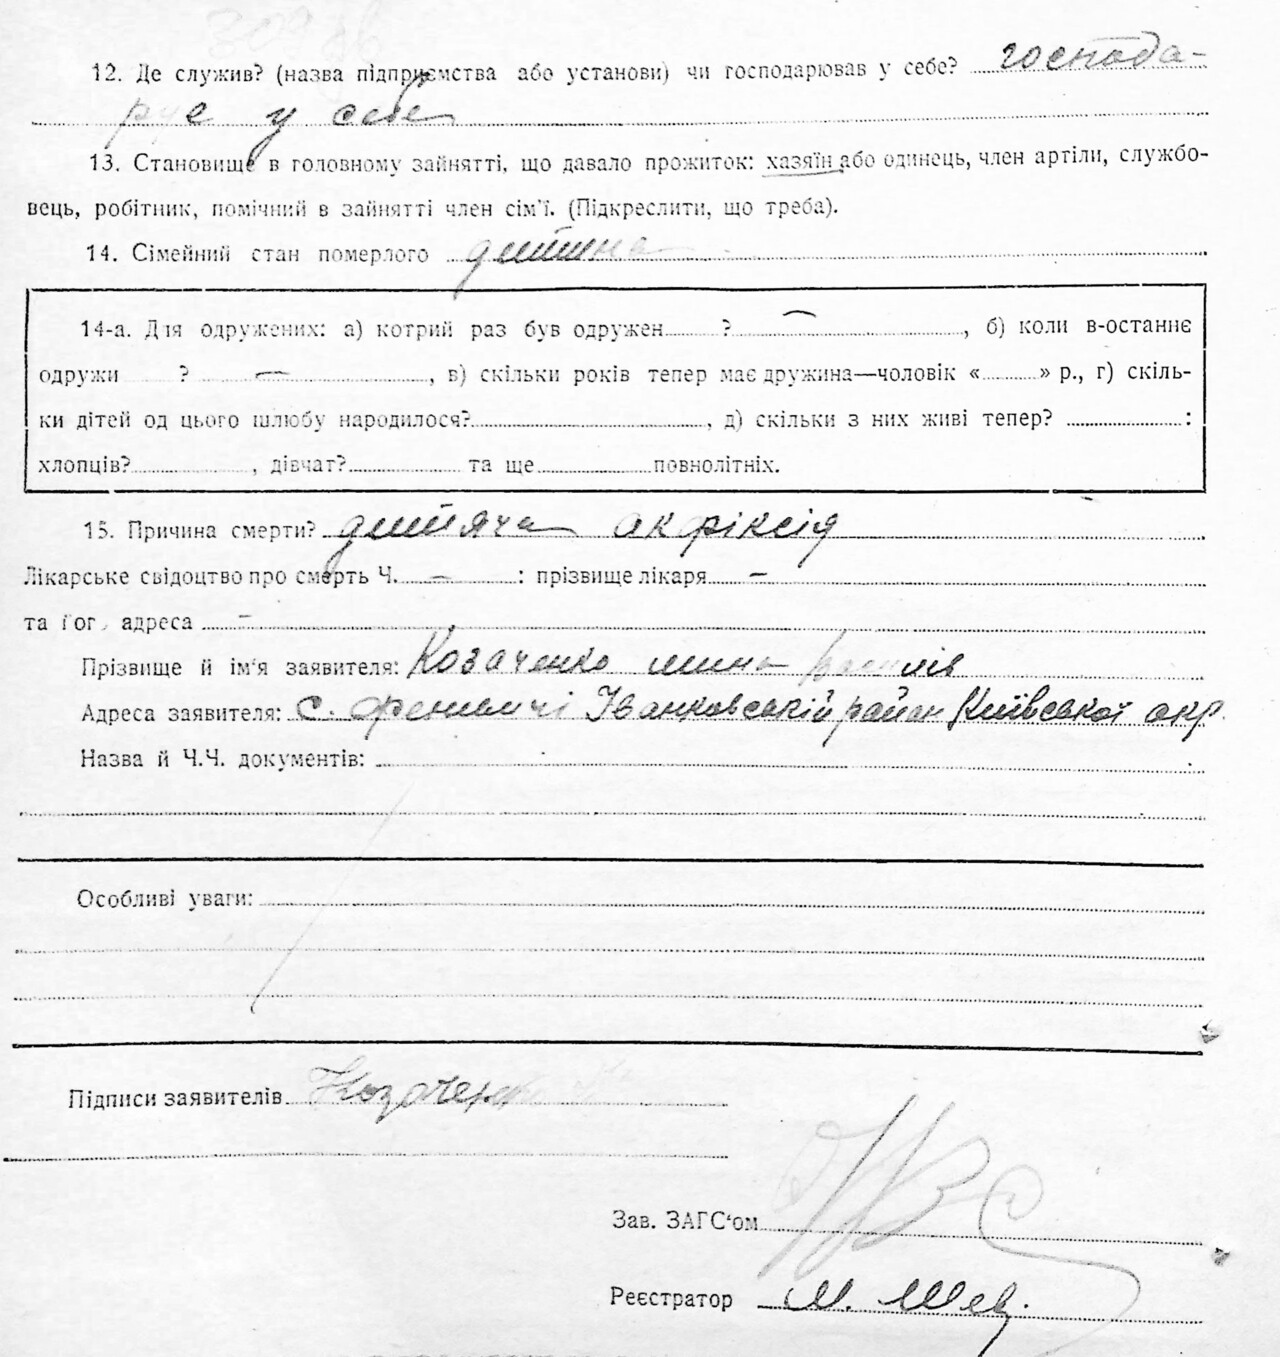 12. Де служив? (назва підприємства або установи) чи господарював у себе? господа-
рує у себе
13. Становище в головному зайнятті, що давало прожиток: хазяїн або одинець, член артіли, службо-
вець, робітник, помічний в зайнятті член сім'ї. (Підкреслити, що треба).
14. Сімейний стан померлого дитина
14-а. Для одружених: а) котрий раз був одружен ? —, б) коли в-останнє
одружи ? —, в) скільки років тепер має дружина—чоловік « » р., г) скіль-
ки дітей од цього шлюбу народилося? , д) скільки з них живі тепер? :
хлопців? , дівчат? та ще повнолітніх.
15. Причина смерти? дитяча акфіксія
Лікарське свідоцтво про смерть Ч. — : прізвище лікаря —
та його адреса —
Прізвище й ім'я заявителя: Козаченко
Адреса заявителя: с. Феневичі Іванковській район Київської окр.
Назва й Ч.Ч. документів:
Особливі уваги:
Підписи заявителів Козаченко
Зав. ЗАГС'ом
Реєстратор М. Шев.